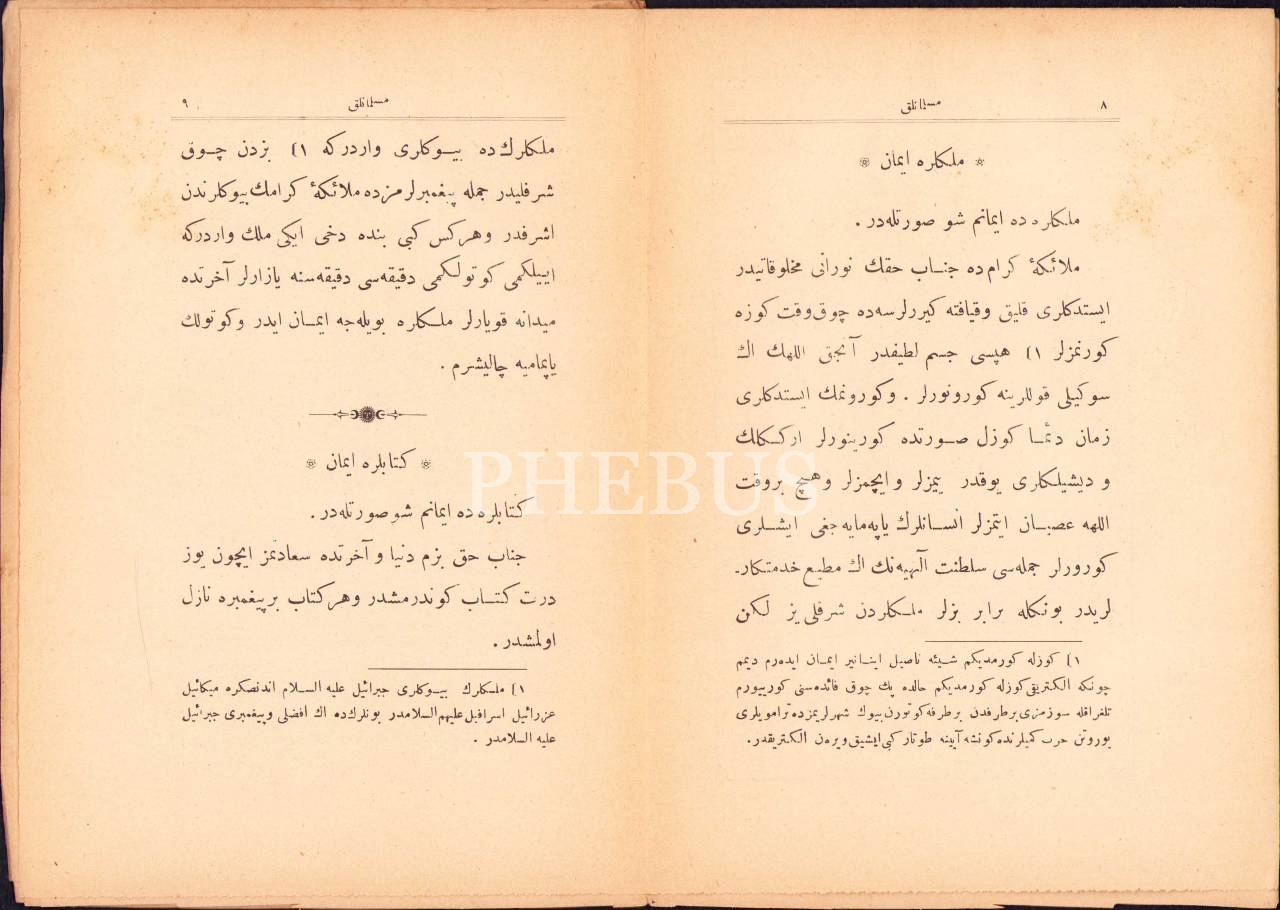 ٨
مسلمانلق
* ملكلره ایمان *
ملكلره ده ایمانم شو صورتله‌در .
ملائكهٔ كرام ده جناب حقك نورانی مخلوقاتیدر
ایستدكلری قلیق وقیافته كیررلرسه‌ده چوق وقت كوزه
كورنمزلر ١) هپسی جسم لطیفدر آنجق اللهك اك
سوكیلی قوللرینه كورونورلر . وكورونمك ایستدكلری
زمان دئما كوزل صورتده كورینورلر ارككلك
و دیشیلكلری یوقدر ییمزلر و ایچمزلر وهیچ بروقت
اللهه عصیان ایتمزلر انسانلرك یاپه‌مایه‌جغی ایشلری
كورورلر جمله‌سی سلطنت آلهیه‌نك اك مطیع خدمتكار-
لریدر بونكله برابر بزلر ملكلردن شرفلی یز لكن
١) كوزله كورمدیكم شیئه ناصیل اینانیر ایمان ایدەرم دیمم
چونكه الكتریقی كوزله كورمدیكم حالده پك چوق فائده‌سنی كورییورم
تلغرافله سوزمزی برطرفدن برطرفه كوتورن بیوك شهرلریمزده ترامویلری
یوروتن حرب كمیلرنده كونشه آیینه طوتار كبی ایشیق ویره‌ن الكتریقدر.
مسلمانلق
٩
ملكلرك ده بیوكلری واردركه ١) بزدن چوق
شرفلیدر جمله پیغمبرلرمزده ملائكهٔ كرامك بیوكلرندن
اشرفدر وهركس كبی بنده دخی ایكی ملك واردركه
اییلكمی كوتولكمی دقیقه‌سی دقیقه‌سنه یازارلر آخرتده
میدانه قویارلر ملكلره بویله‌جه ایمان ایدر وكوتولك
یاپمامیه چالیشرم .
* كتابلره ایمان *
كتابلره ده ایمانم شو صورتله‌در .
جناب حق بزم دنیا و آخرتده سعادتمز ایچون یوز
درت كتاب كوندرمشدر وهركتاب برپیغمبره نازل
اولمشدر .
١) ملكلرك بیوكلری جبرائیل علیه السلام اندنصكره میكائیل
عزرائیل اسرافیل علیهم السلامدر بونلرك ده اك افضلی وپیغمبری جبرائیل
علیه السلامدر .
PHEBUS